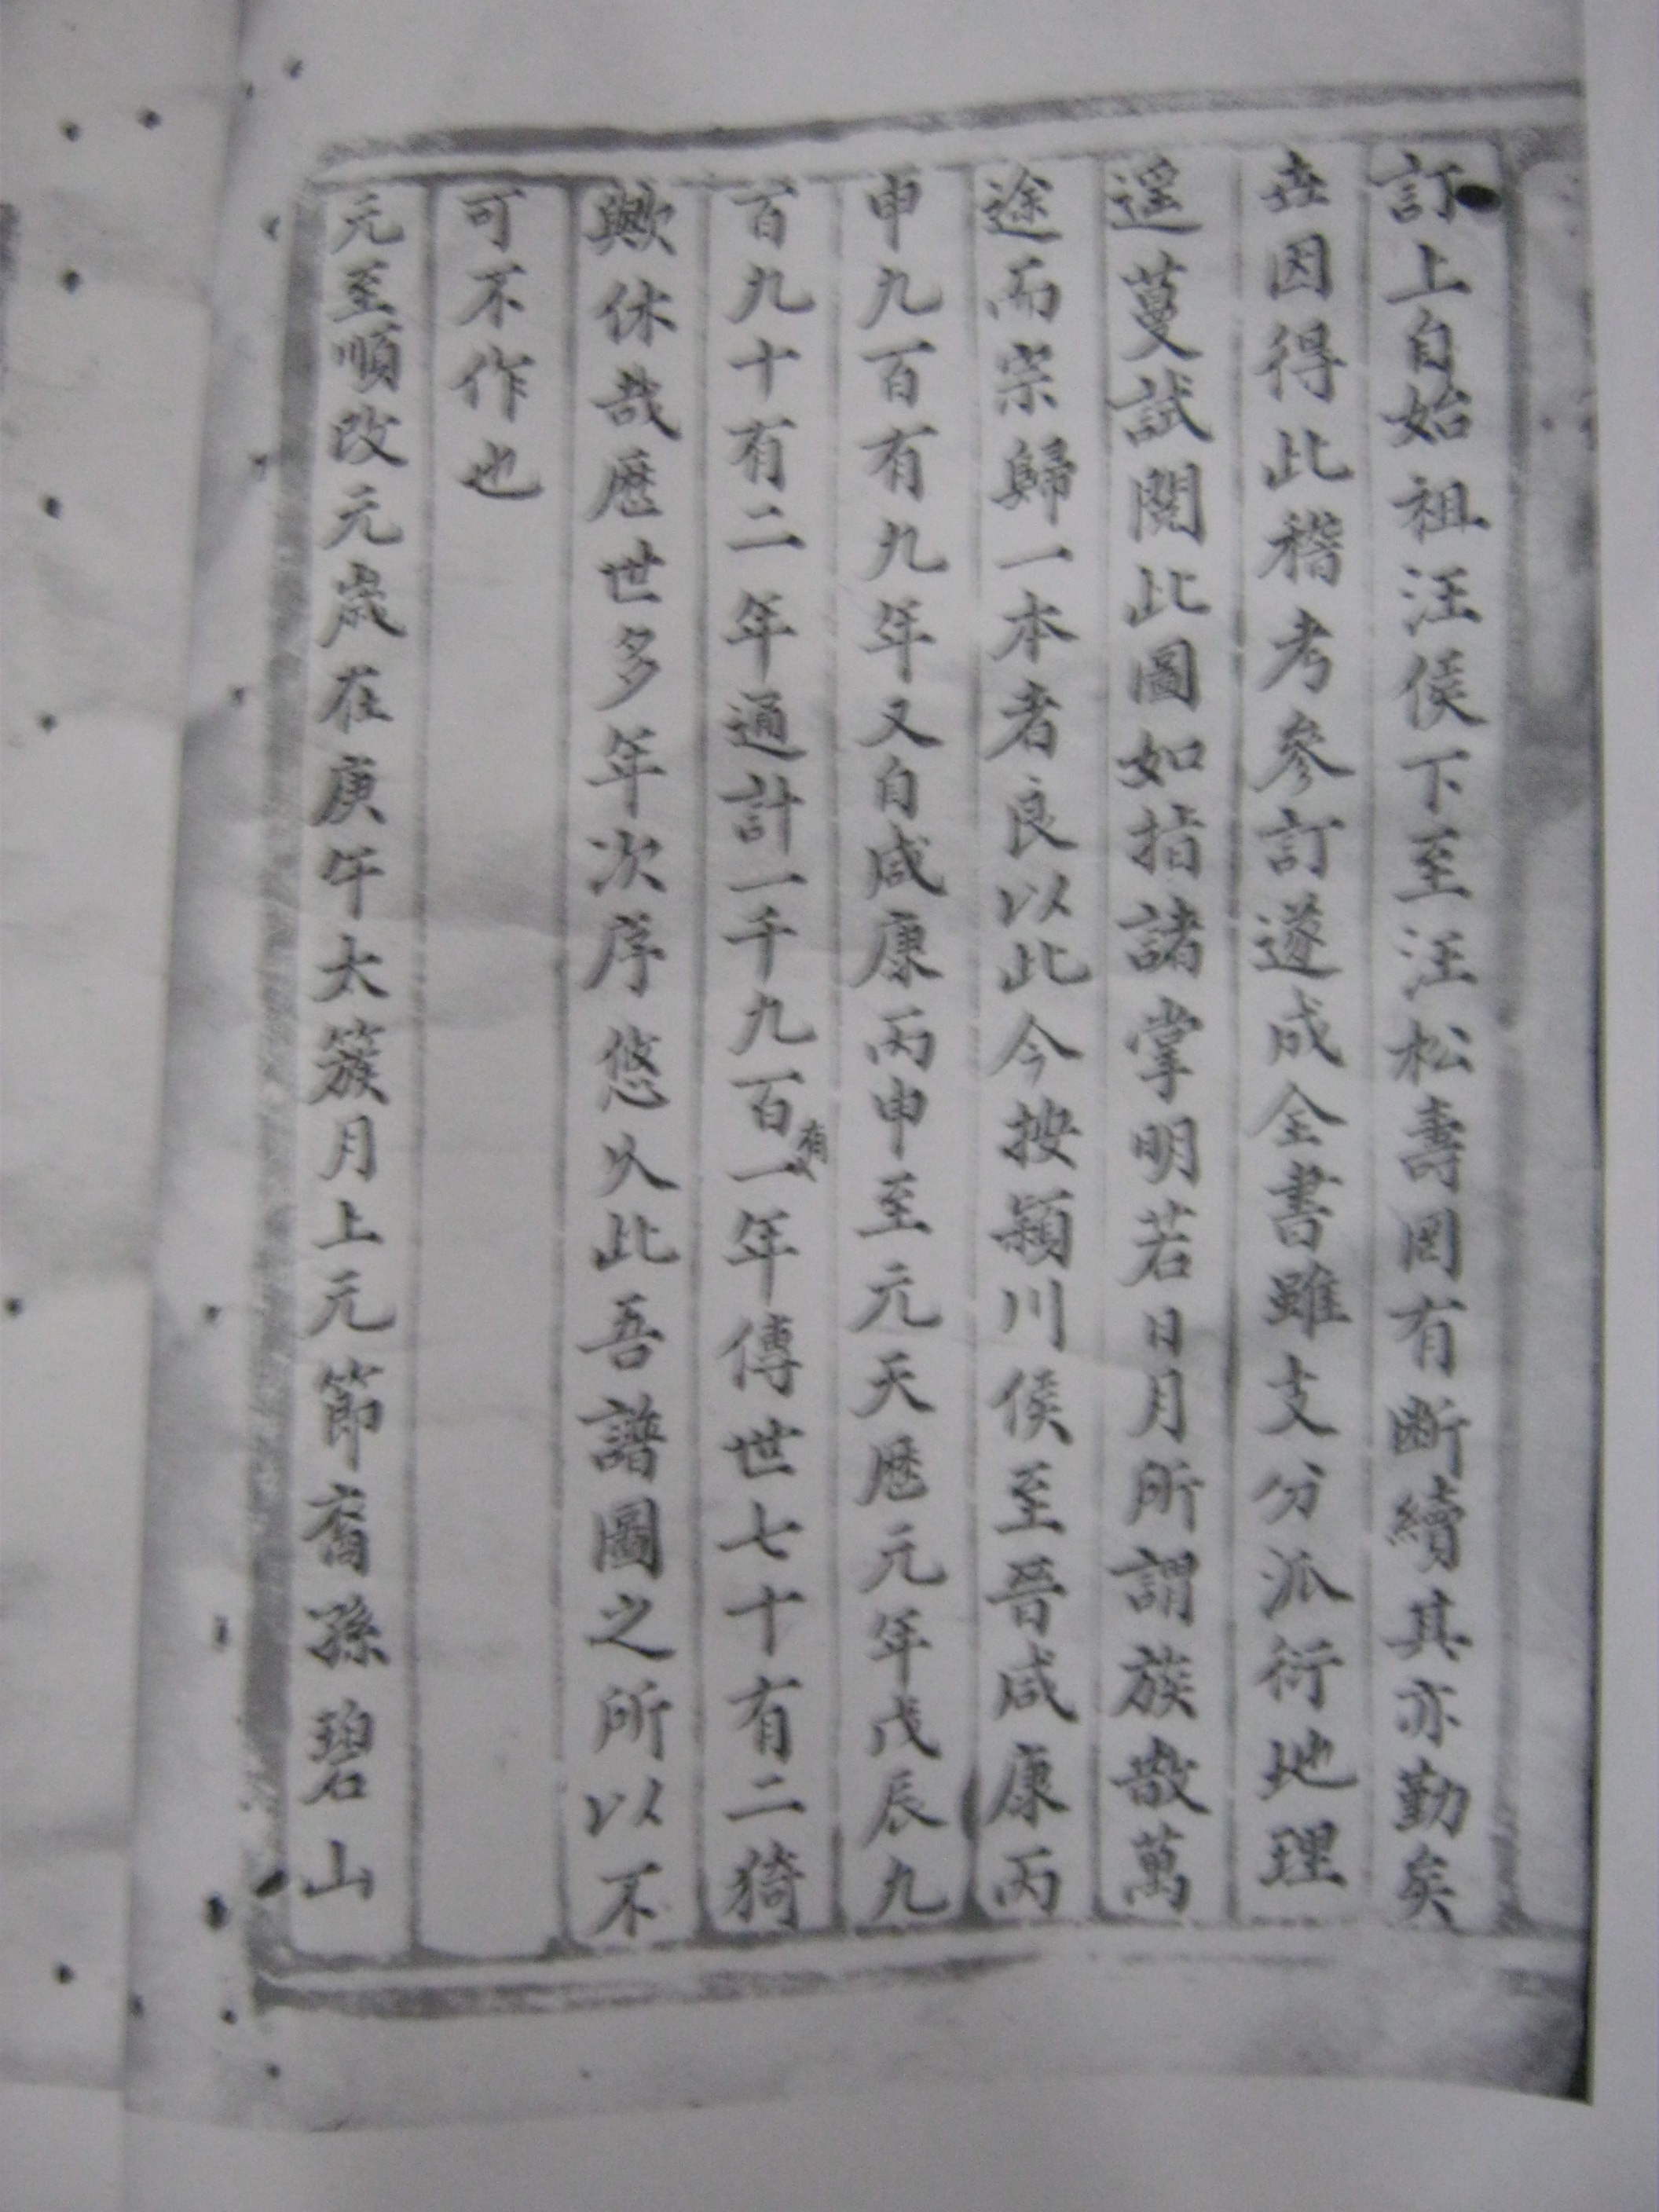 訂上自始祖汪侯下至汪松壽罔有斷續其亦勤矣
玆因得此稽考參訂遂成全書雖支分派衍地理
遥蔓試閱此圖如指諸掌明若日月所謂族散萬
途而宗歸一本者良以此今按潁川侯至晉咸康丙
申九百有九年又自咸康丙申至元天厯元年戊辰九
百九十有二年通計一千九百有一年傳世七十有二猗
歟休哉厯世多年次序悠久此吾譜圖之所以不
可不作也
元至順改元歲在庚午太簇月上元節裔孫碧山